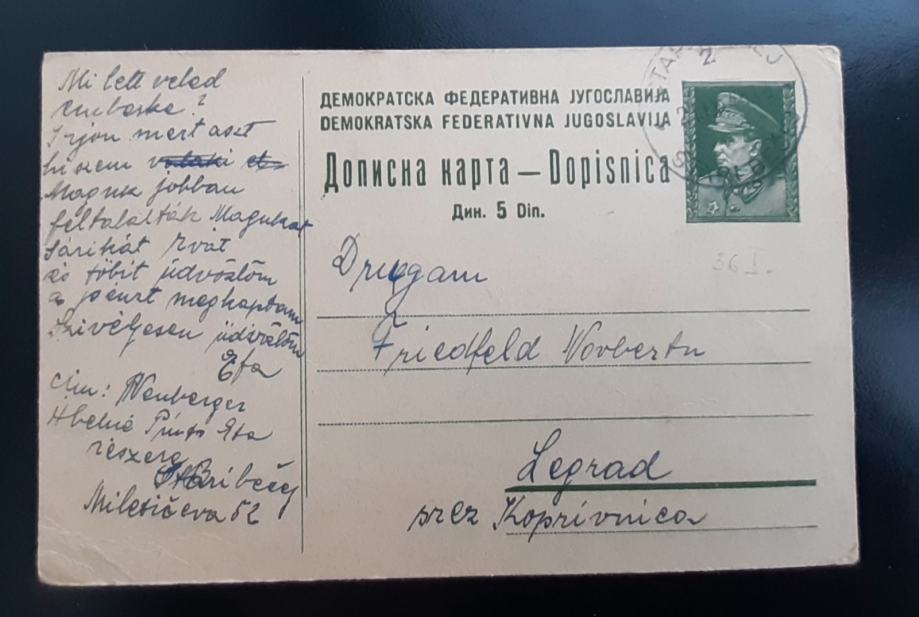 Mi lett veled
emberke?
Irjon mert aszt
hiszem
Maguk jobban
feltalalták Magukat
Sárikát Ivát
és többit üdvözlöm
a pénzt megkaptam
Szivélyesen üdvözlöm
Efa
cim: Neuberger
Abelné
részere
Stari bečej
Miletićeva 52
ДЕМОКРАТСКА ФЕДЕРАТИВНА ЈУГОСЛАВИЈА
DEMOKRATSKA FEDERATIVNA JUGOSLAVIJA
Дописна карта — Dopisnica
Дин. 5 Din.
36 I.
Drugam
Friedfeld Norbertu
Legrad
srez Koprivnica